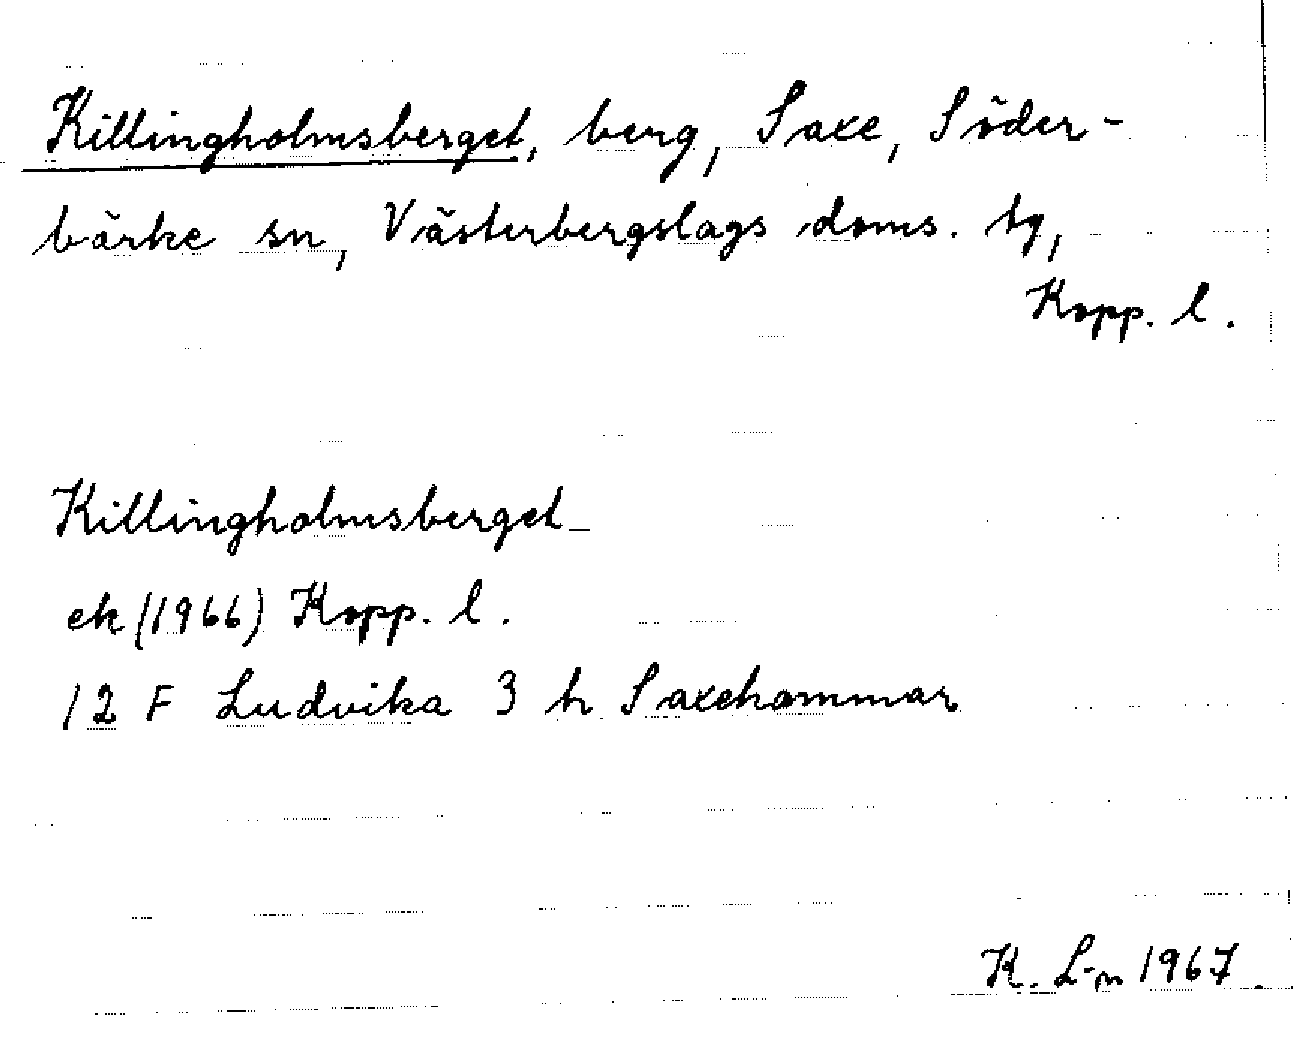 Killingholmsberget, berg, Saxe, Söder-
bärke sn, Västerbergslags doms. tg,
Kopp. l.
Killingholmsberget_
ek (1966) Kopp. l.
12 F Ludvika 3 h Saxehammar
K. L-n 1967.